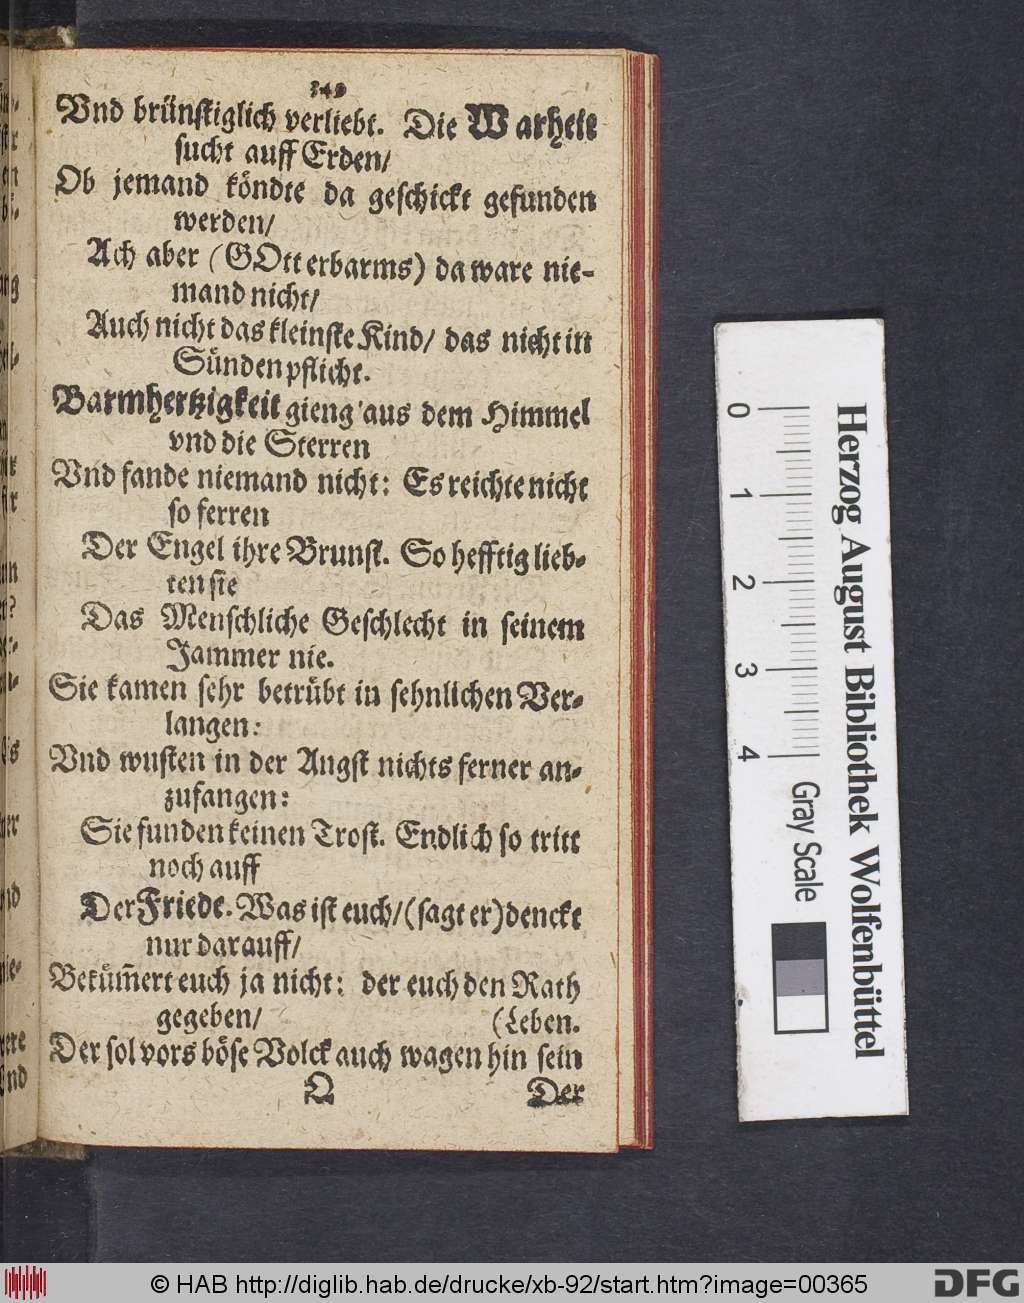 Vnd brünstiglich verliebt. Die Warheit
sucht auff Erden/
Ob jemand köndte da geschickt gefunden
werden/
Ach aber (GOtt erbarms) da ware nie-
mand nicht/
Auch nicht das kleinste Kind/ das nicht in
Sünden pflicht.
Barmhertzigkeit gieng aus dem Himmel
vnd die Sterren
Vnd fande niemand nicht: Es reichte nicht
so ferren
Der Engel ihre Brunst. So hefftig lieb-
ten sie
Das Menschliche Geschlecht in seinem
Jammer nie.
Sie kamen sehr betrübt in sehnlichen Ver-
langen:
Vnd wusten in der Angst nichts ferner an-
zufangen:
Sie funden keinen Trost. Endlich so tritt
noch auff
Der Friede. Was ist euch/ (sagt er) denckt
nur darauff/
Bekům̃ert euch ja nicht: der euch den Rath
gegeben/ (Leben.
Der sol vors böse Volck auch wagen hin sein
Q Der
0 1 2 3 4
Gray Scale
Herzog August Bibliothek Wolfenbüttel
© HAB http://diglib.hab.de/drucke/xb-92/start.htm?image=00365
DFG